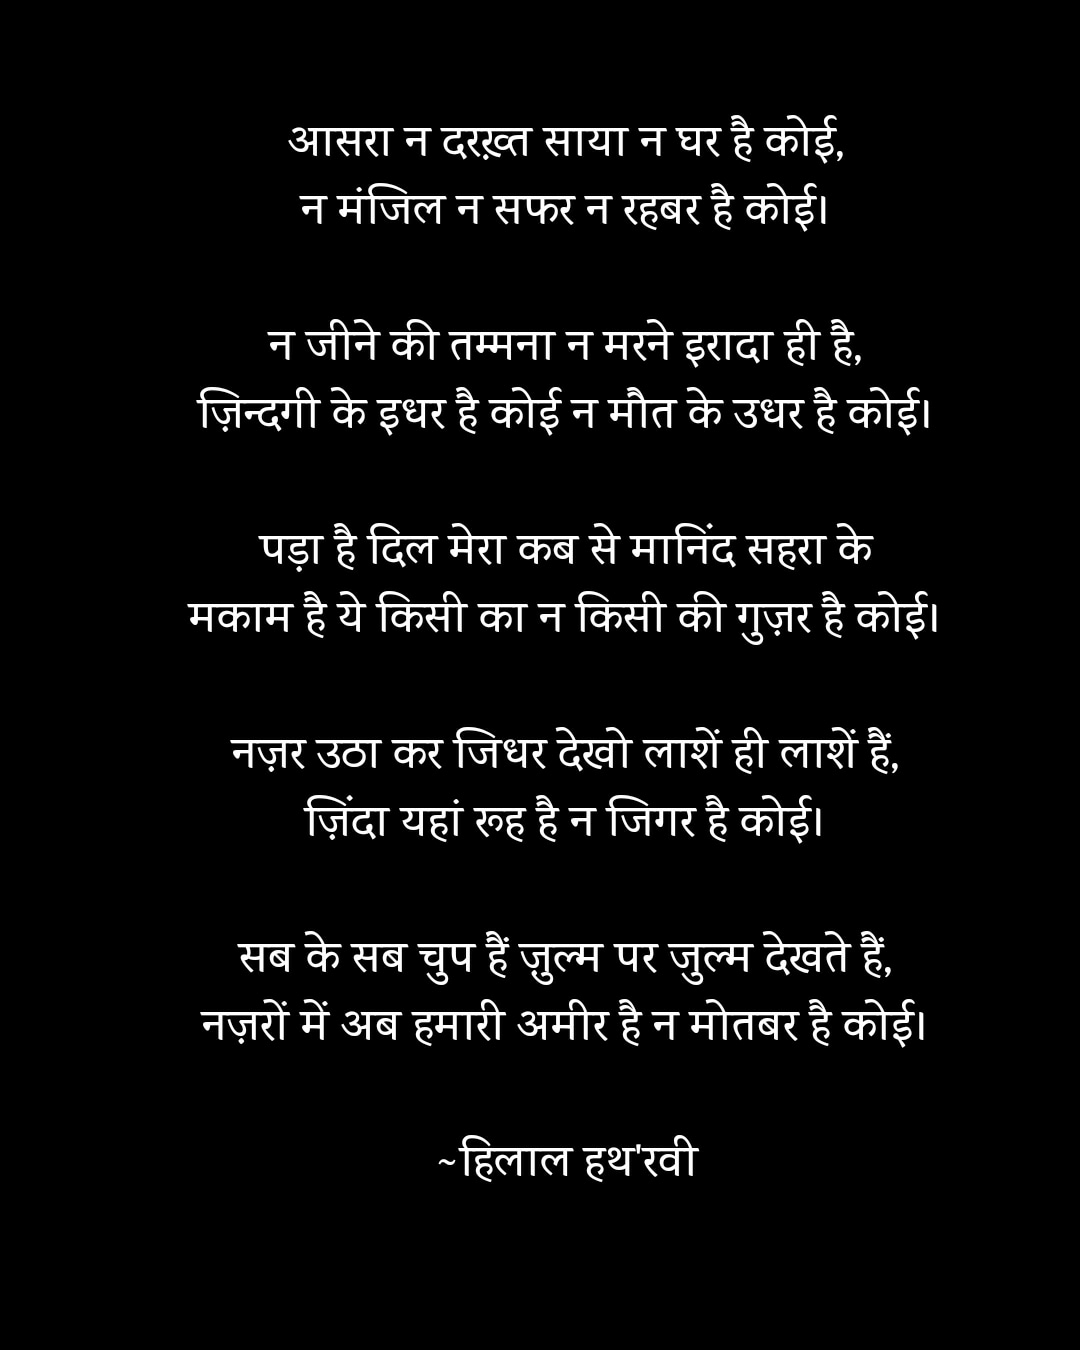 आसरा न दरख़्त साया न घर है कोई,
न मंजिल न सफर न रहबर है कोई।
न जीने की तम्मना न मरने इरादा ही है,
ज़िन्दगी के इधर है कोई न मौत के उधर है कोई।
पड़ा है दिल मेरा कब से मानिंद सहरा के
मकाम है ये किसी का न किसी की गुज़र है कोई।
नज़र उठा कर जिधर देखो लाशें ही लाशें हैं,
ज़िंदा यहां रूह है न जिगर है कोई।
सब के सब चुप हैं ज़ुल्म पर जुल्म देखते हैं,
नज़रों में अब हमारी अमीर है न मोतबर है कोई।
~हिलाल हथ'रवी